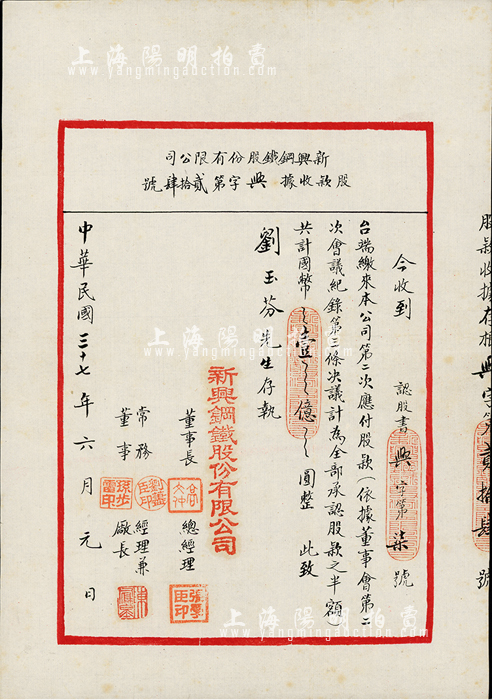 上海陽明拍賣
www.yangmingauction.com
新興鋼鐵股份有限公司
股款收據 興字第貳拾肆號
今收到 認股書興字第柒號
台端繳來本公司第二次應付股款(依據董事會第二
次會議紀錄第三條決議計為全部承認股款之半額)
共計國幣壹億圓整 此致
劉玉芬先生存執
新興鋼鐵股份有限公司
董事長 總經理
常務董事 經理兼廠長
中華民國三十七年六月元日
股款收據存根 興字第貳拾肆號
上海陽明拍賣
www.yangmingauction.com
上海陽明拍賣
www.yangmingauction.com